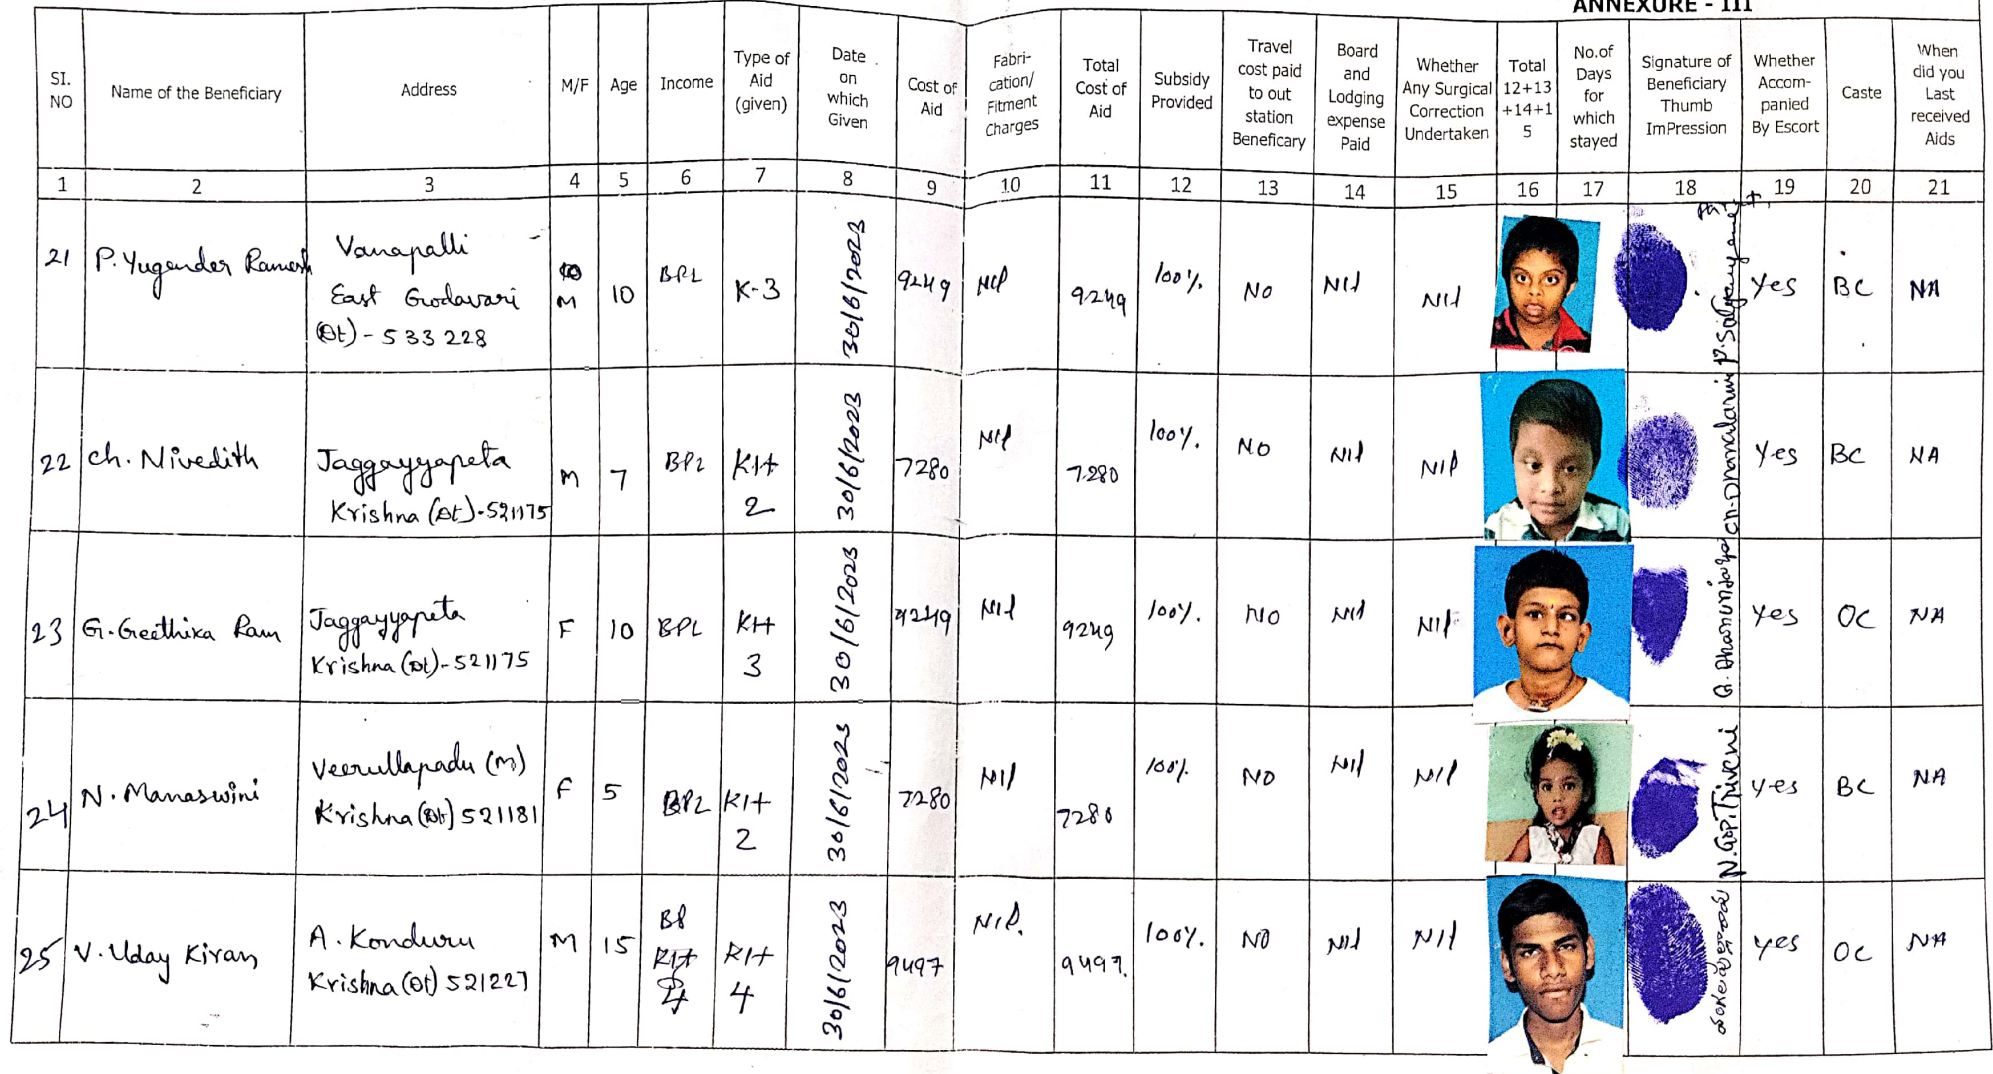 ANNEXURE - III
SI. NO
Name of the Beneficiary
Address
M/F
Age
Income
Type of Aid (given)
Date on which Given
Cost of Aid
Fabri-cation/ Fitment Charges
Total Cost of Aid
Subsidy Provided
Travel cost paid to out station Beneficary
Board and Lodging expense Paid
Whether Any Surgical Correction Undertaken
Total 12+13 +14+1 5
No.of Days for which stayed
Signature of Beneficiary Thumb ImPression
Whether Accom-panied By Escort
Caste
When did you Last received Aids
1 2 3 4 5 6 7 8 9 10 11 12 13 14 15 16 17 18 19 20 21
21 P. Yugender Ramesh
Vanapalli
East Godavari
(Dt) - 533 228
M 10 BPL K-3 30/6/2023 9249 Nil 9249 100% NO Nil Nil Yes BC NA
22 Ch. Nivedith
Jaggayyapeta
Krishna (Dt)-521175
M 7 BPL Kit
2
30/6/2023 7280 Nil 7280 100% NO Nil Nil Yes BC NA
23 G. Geethika Ram
Jaggayyapeta
Krishna (Dt)-521175
F 10 BPL Kit
3
30/6/2023 9249 Nil 9249 100% NO Nil Nil G. Dhanunjaya Yes OC NA
24 N. Manaswini
Veerullapadu (M)
Krishna (Dt) 521181
F 5 BPL Kit
2
30/6/2023 7280 Nil 7280 100% NO Nil Nil N. Gopi Triveni Yes BC NA
25 V. Uday Kiran
A. Konduru
Krishna (Dt) 521227
M 15 BP
Kit
4
Kit
4
30/6/2023 9497 Nil. 9497. 100% NO Nil Nil Yes OC NA